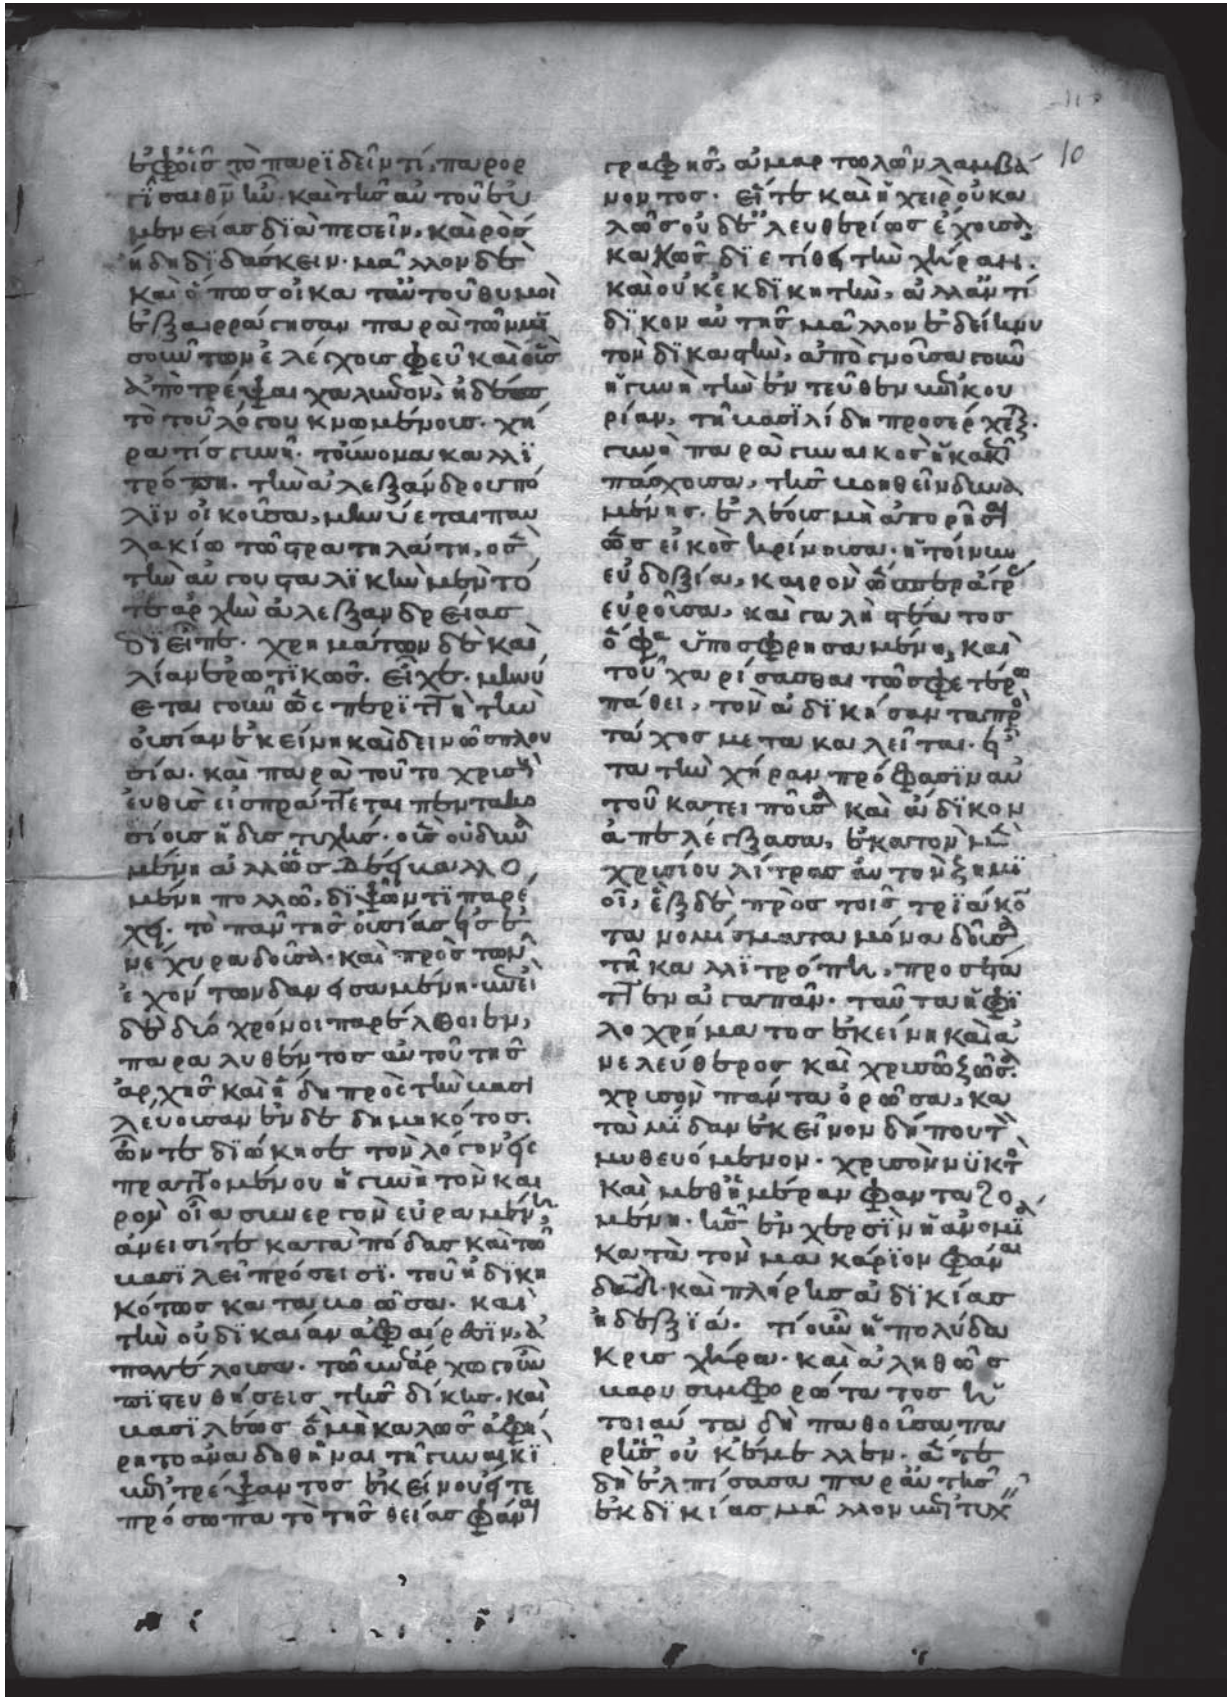 ἐφ' οἷς τὸ παριδεῖν τί, παρορ
γίσαι θν ἦν. καὶ τῆς αὐτοῦ εὐ
μενείας διαπεσεῖν, καιρὸς
ἤδη διδάσκειν. μᾶλλον δὲ
καὶ ὅπως οἱ κατ' αὐτοῦ θυμοὶ
ἐξερράγησαν παρὰ τῶν μι
σούντων ἐλέγχους φεῦ καὶ οἷς
ἀποτρέψαι χαλινὸν, ἡδέως
τὸ τοῦ λόγου κνωμένοις. χή
ρα τίς γυνή. τοὔνομα καλλϊ
τρόπη. τὴν ἀλεξάνδρου πό
λϊν οἰκοῦσα, μηνύεται παυ
λακίω τῶ στρατηλάτη, ὃς
τὴν αὐγουσταλϊκὴν μὲν τό
τε ἀρχὴν ἀλεξανδρείας
διεῖπε. χρημάτων δὲ καὶ
λίαν ἐρωτϊκῶς εἶχε. μηνύ
εται γοῦν ὡς περϊττὴ τὴν
οὐσίαν ἐκείνη καὶ δεινῶς πλου
σία. καὶ παρὰ τοῦτο χρυσοῦ
εὐθὺς εἰσπράττεται πεντακο
σίους ἡ δυστυχής. οἷς οὐ δυνα
μένη ἄλλως καλλο
μένη πολλῶ, διψῶντι παρέ
χειν. τὸ πᾶν τῆς οὐσίας εἰς ἐ
νέχυρα δοῦσα. καὶ πρὸς τῶν
ἐχόντων δανεισαμένη. ἐπεὶ
δὲ δύο χρόνοι παρέλθοιεν,
παραλυθέντος αὐτοῦ τῆς
ἀρχῆς καὶ ἤδη πρὸς τὴν βασι
λεύουσαν ἐνδεδημηκότος.
ὧν τε διώκησε τὸν λόγον εἰσ
πραττομένου ἡ γυνὴ τὸν και
ρὸν οἷα συνεργὸν εὑραμένη
ἄνεισί τε κατὰ πόδας καὶ τῶ
βασϊλεῖ πρόσεισϊ. τοῦ ἠδϊκη
κότος καταβοῶσα. καὶ
τὴν οὐ δϊκαίαν ἀφαίρεσϊν, ἀ
παγγέλουσα. τῶ ὑπάρχω γοῦν
πϊστευθήσεις τῆς δίκης. καὶ
βασϊλέως ὃ μὴ καλῶς ἀφή
ρητο ἀναδοθῆναι τῆ γυναικὶ
ἐπιτρέψαντος ἐκείνου εἴτε
πρόσωπα τὸ τῆς θείας φάναι
10
γραφῆς, ἁμαρτωλῶν λαμβά
νοντος. εἴτε καὶ ἡ χεὶρ οὐ κα
λῶς οὐδ' ἐλευθερίως ἔχουσα
κακῶς δϊετίθει τὴν χήραν.
καὶ οὐκ ἐκδϊκητὴν, ἀλλ' ἀντί
δϊκον αὐτῆς μᾶλλον ἐδείκνυ
τὸν δϊκαστὴν, ἀπογνοῦσα γοῦν
ἡ γυνὴ τὴν ἐντεῦθεν ἐπικου
ρίαν, τῆ βασϊλίδη προσέρχεται.
γυνὴ παρὰ γυναικὸς ἡ κακῶς
πάσχουσα, τῆς βοηθεῖν δυνα
μένης. ἐλέους μὴ ἀπορῆσαι
ὡς εἰκὸς κρίνουσα. ἡ τοίνυν
εὐδοξία, καιρὸν
εὑροῦσα, καὶ γαλῆ στέατος
ὅ φασιν ὑποσφρησαμένη, καὶ
τοῦ χαρίσασθαι τῶ σφετέρω
πάθει, τὸν ἀδϊκήσαντα πρὸς
τάχος μετακαλεῖται. εἶ
τα τὴν χήραν πρόφασϊν αὐ
τοῦ κατειποῦσα καὶ ἄδϊκον
ἀπελέγξασα, ἑκατὸν μὲν
χρυσίου λίτρας αὐτὸν ζημϊ
οῖ, ἓξ δὲ πρὸς τοῖς τρϊάκον
τα νομίσματα μόνα δοῦσα
τῆ καλλϊτρόπη, προστά
ττεν ἀγαπᾶν. ταῦτα ἡ φϊ
λοχρήματος ἐκείνη καὶ ἀ
νελεύθερος καὶ χρυσὸν ζῶσα.
χρυσὸν πάντα ὁρῶσα, κα
τὰ μίδαν ἐκεῖνον δήπου τὸν
μυθευόμενον. χρυσὸν νύκτωρ
καὶ μεθ' ἡμέραν φανταζο
μένη. ἧς ἐν χερσὶν ἡ ἀνομία
κατὰ τὸν μακάριον φάναι
δαδ. καὶ πλήρης ἀδϊκίας
ἡ δεξϊά. τί οὖν ἡ πολύδα
κρυς χήρα. καὶ ἀληθῶς
βαρυσυμφορώτατος ἡ
τοιαύτα δὴ παθοῦσα πα
ρ' ἧς οὐκ ἔμελλεν. ἅτε
δὴ ἐλπίσασα παρ' αὐτῆς
ἐκδϊκίας μᾶλλον ἐπιτυχ